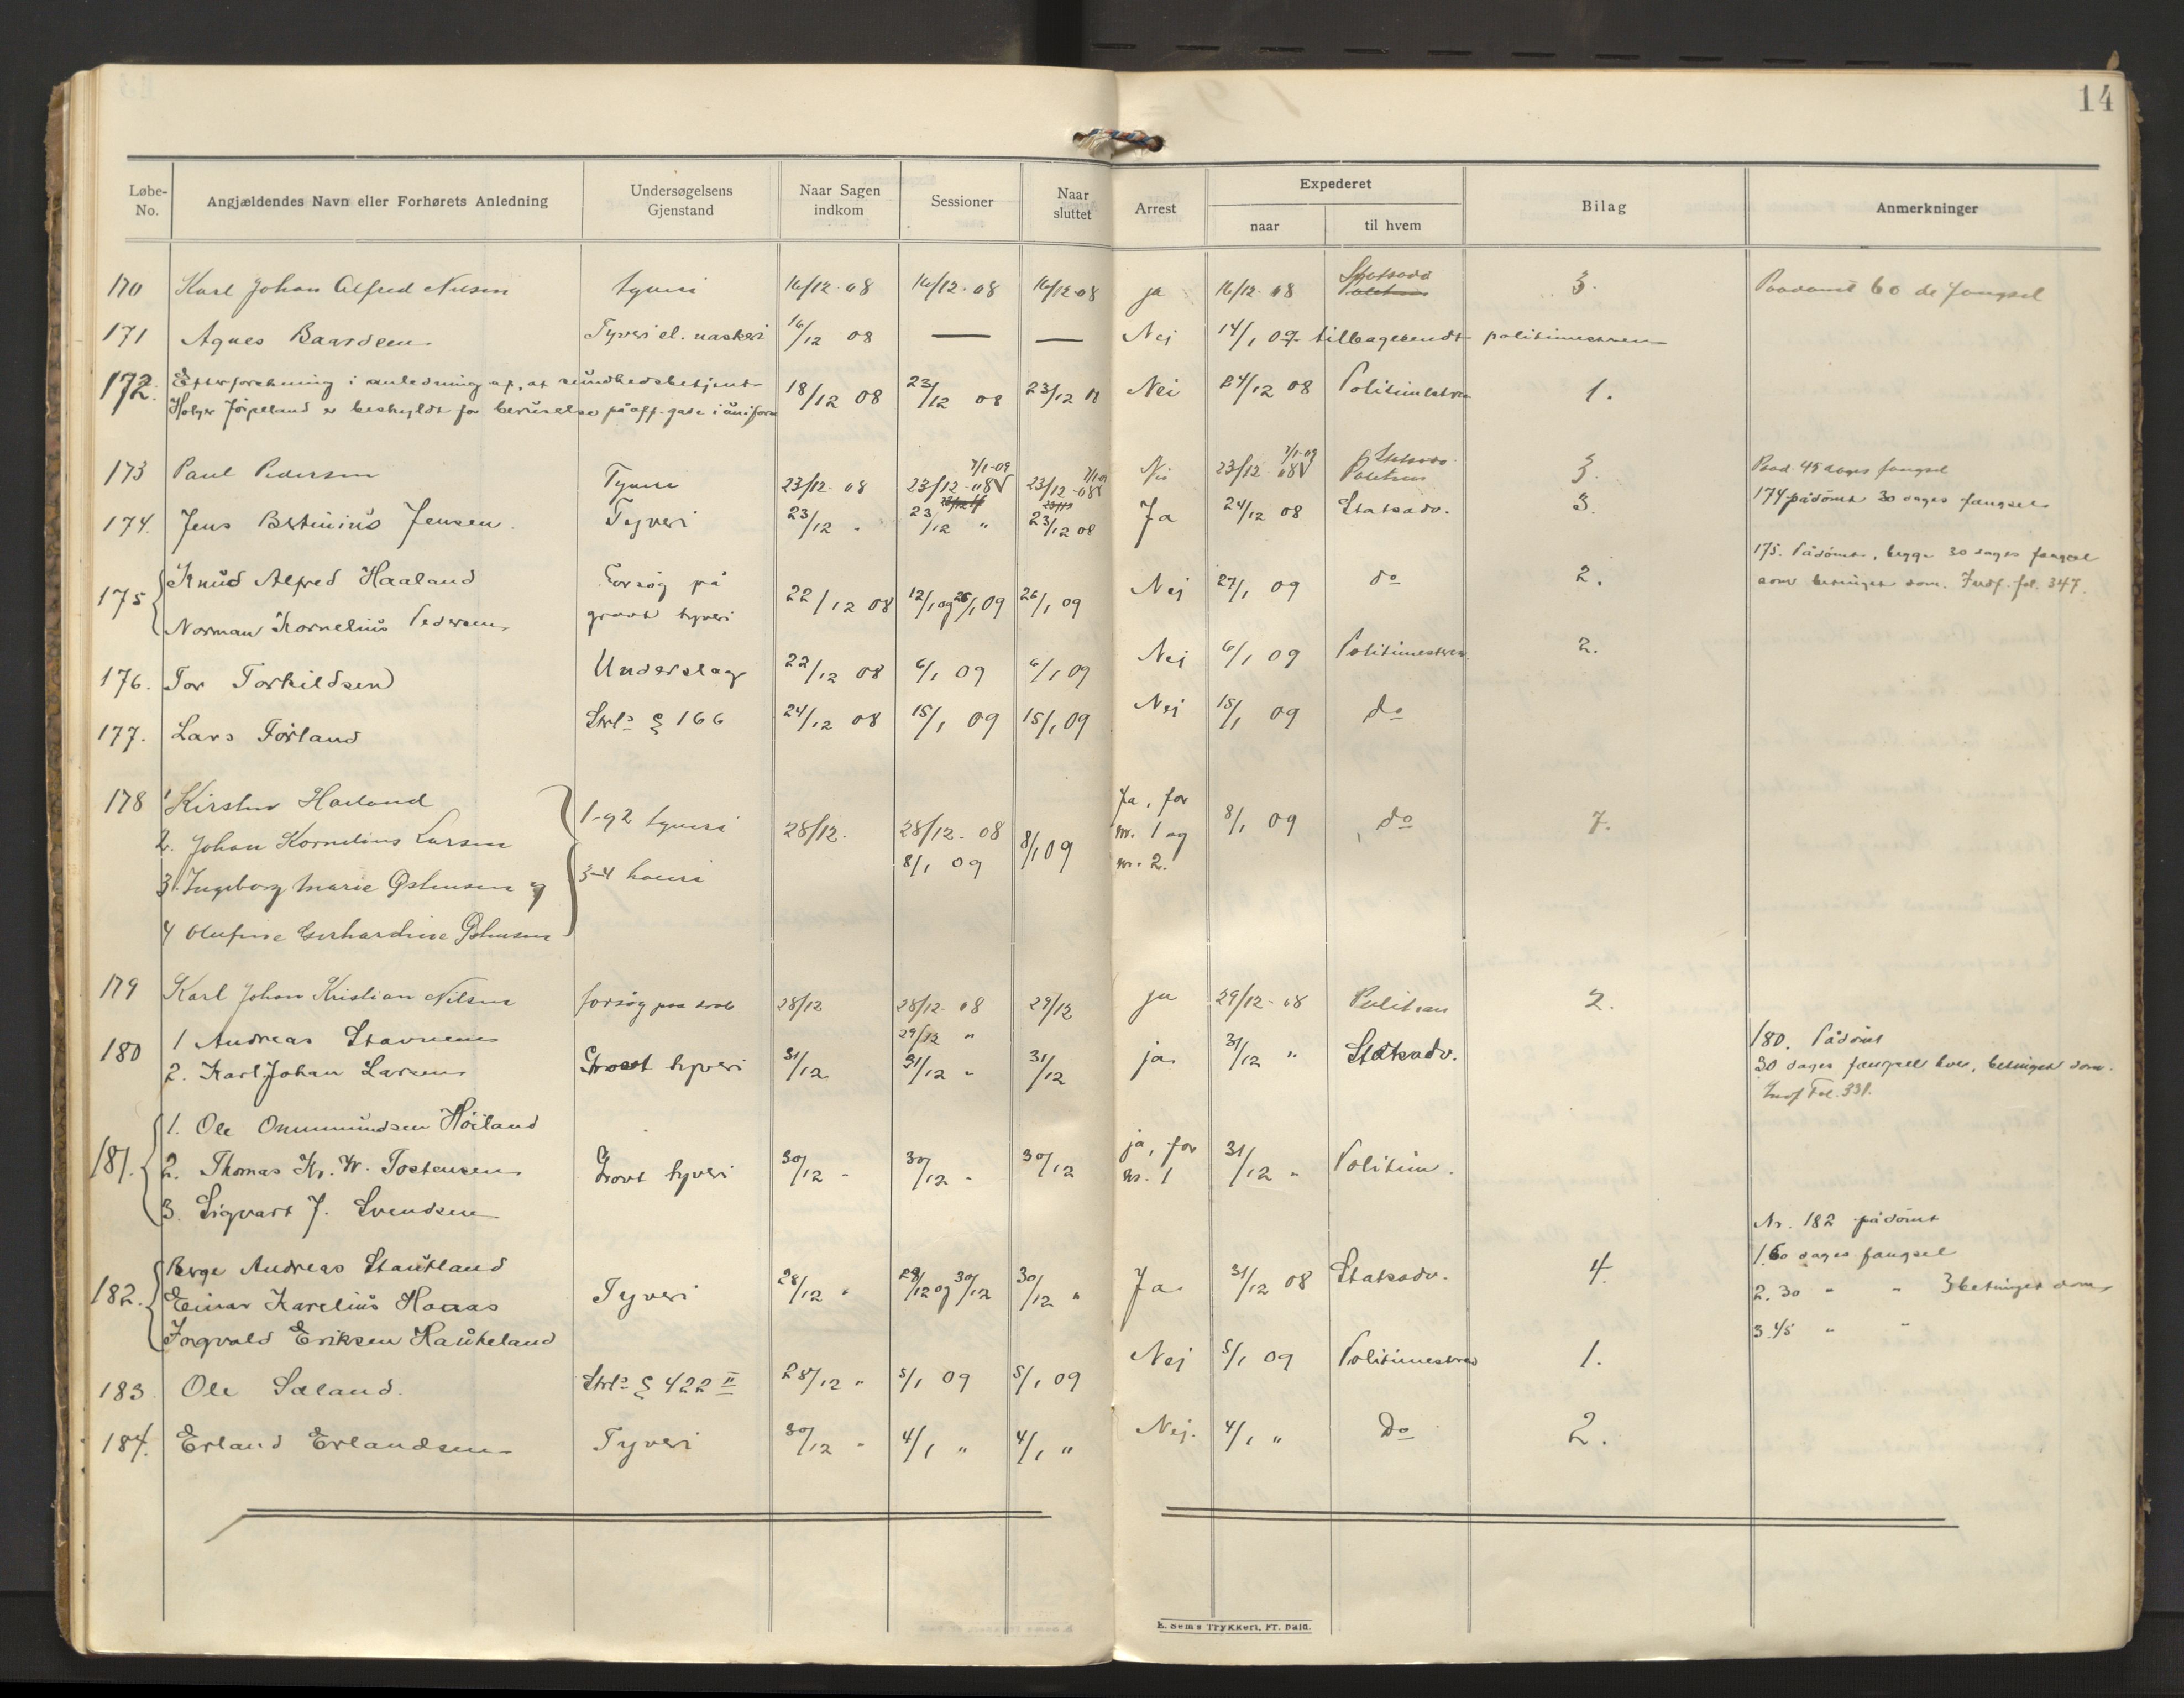 14
Løbe-No. Angjældendes Navn eller Forhørets Anledning Undersøgelsens Gjenstand Naar Sagen indkom Sessioner Naar sluttet Arrest Expederet naar til hvem Bilag Anmerkninger
170 Karl Johan Alfred Nilsen tyveri 16/12-08 16/12-08 16/12-08 ja 16/12-08 Statsadv 3. Paadømt 60 da fængsel
171 Agnes Baardsen Tyveri el. naskeri 16/12 08 — — Nej 14/1 09 tilbagesendt politimestren
172. Efterforskning i anledning af, at sundhedsbetjent
Holger Jørpeland er beskyldt for beruselse på off. gade i uniform 18/12 08 23/12 08 23/12 08 Nei 24/12 08 Politimestren 1.
7/1-09 7/1-09 7/1-09 Statsadv.
173 Paul Pedersen Tyveri 23/12-08 23/12-08 23/12-08 Nei 23/12-08 Politim 3. Paad. 45 dages fængsel
174. Jens Bertinius Jensen. Tyveri 23/12 " 23/12 " 23/12 08 Ja 24/12 08 Statsadv. 3. 174 pådømt 30 dages fængsel
175 Knud Alfred Haaland Forsøg på 22/12 08 12/1 og 26/1 09 26/1 09 Nej 27/1 09 do 2. 175. Pådømt, begge 30 dages fængsel
Norman Kornelius Pedersen grovt tyveri betinget dom. Fol. 347.
176. Tor Torkildsen Underslag 22/12 08 6/1 09 6/1 09 Nej 6/1 09 Politimestren. 2.
177. Lars Førland Strl § 166 24/12 08 15/1 09 15/1 09 Nej 15/1 09 do
178 1 Kirsten Haaland 1 og 2 tyveri 28/12. 28/12-08 8/1 09 Ja, for 8/1 09 do 7.
2. Johan Kornelius Larsen 8/1 09 nr. 1 og
3. Ingeborg Marie Osmunsen og 3-4 heleri nr. 2.
4 Olufine Gerhardine Osmunsen
179 Karl Johan Kristian Nilsen forsøg paa drab 28/12 28/12-08 29/12 ja 29/12-08 Politim 2.
29/12 "
180 1 Andreas Stavnem Grovt tyveri 31/12 31/12 " 31/12 ja 31/12 " Statsadv. 180. Pådømt
2. Karl Johan Larsen 30 dages fængsel hver, betinget dom.
Fol. 331.
181. 1. Ole Ommundsen Høiland
2. Thomas Kr. W. Tostensen Grovt tyveri 30/12 " 30/12 " 30/12 ja, for nr. 1 31/12 " Politim.
3. Sigvart J. Svendsen
Nr. 182 pådømt
182. Berge Andreas Stautland 1. 60 dages fængsel
Einar Karelius Haaas Tyveri 28/12 " 29/12 og 30/12 30/12 " Ja 31/12 08 Statsadv. 4. 2. 30 " " betinget dom
Ingvald Eriksen Haukeland 3. 45 " "
183. Ole Saland. Strl § 422 II 28/12 " 5/1 09 5/1 09 Nej 5/1 09 Politimestren 1.
184. Erland Erlandsen Tyveri 30/12 " 4/1 " 4/1 " Nej. 4/1 " Do 2.
E. Sems Trykkeri, Fr. hald.